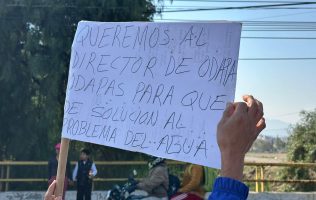 QUEREMOS AL
DIRECTOR DE ODAPA
ODAPAS PARA QUE
DE SOLUCION AL
PROBLEMA DEL AGUA.